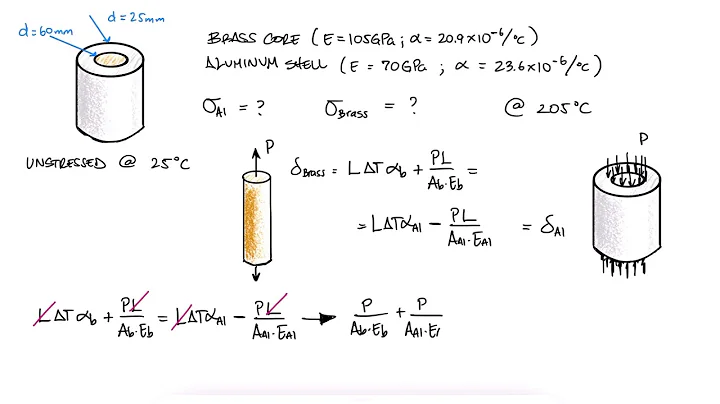 d=60mm
d=25mm
BRASS CORE (E=105GPa; α=20.9×10⁻⁶/°C)
ALUMINUM SHELL (E=70GPa; α=23.6×10⁻⁶/°C)
σAl = ? σBrass = ? @ 205°C
UNSTRESSED @ 25°C
P
P
δBrass = LΔTαb + PL/Ab·Eb =
= LΔTαAl − PL/AAl·EAl = δAl
LΔTαb + PL/Ab·Eb = LΔTαAl − PL/AAl·EAl → P/Ab·Eb + P/AAl·E